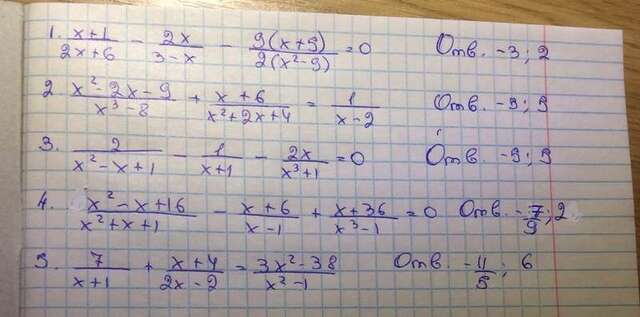 1. \frac{x+1}{2x+6} - \frac{2x}{3-x} - \frac{9(x+9)}{2(x²-9)} = 0 Отв. -3; 2
2 \frac{x²-2x-9}{x³-8} + \frac{x+6}{x²+2x+4} = \frac{1}{x-2} Отв. -9; 9
3. \frac{2}{x²-x+1} - \frac{1}{x+1} - \frac{2x}{x³+1} = 0 Отв. -9; 9
4. \frac{x²-x+16}{x²+x+1} - \frac{x+6}{x-1} + \frac{x+36}{x³-1} = 0 Отв. -\frac{7}{9}; 2
5. \frac{7}{x+1} + \frac{x+4}{2x-2} = \frac{3x²-38}{x²-1} Отв. -\frac{11}{5}; 6